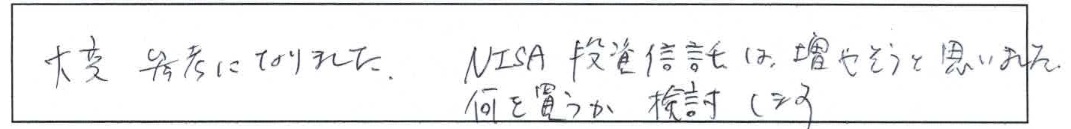 大変 参考になりました. NISA 投資信託は, 増やそうと思いました.
何を買うか 検討します